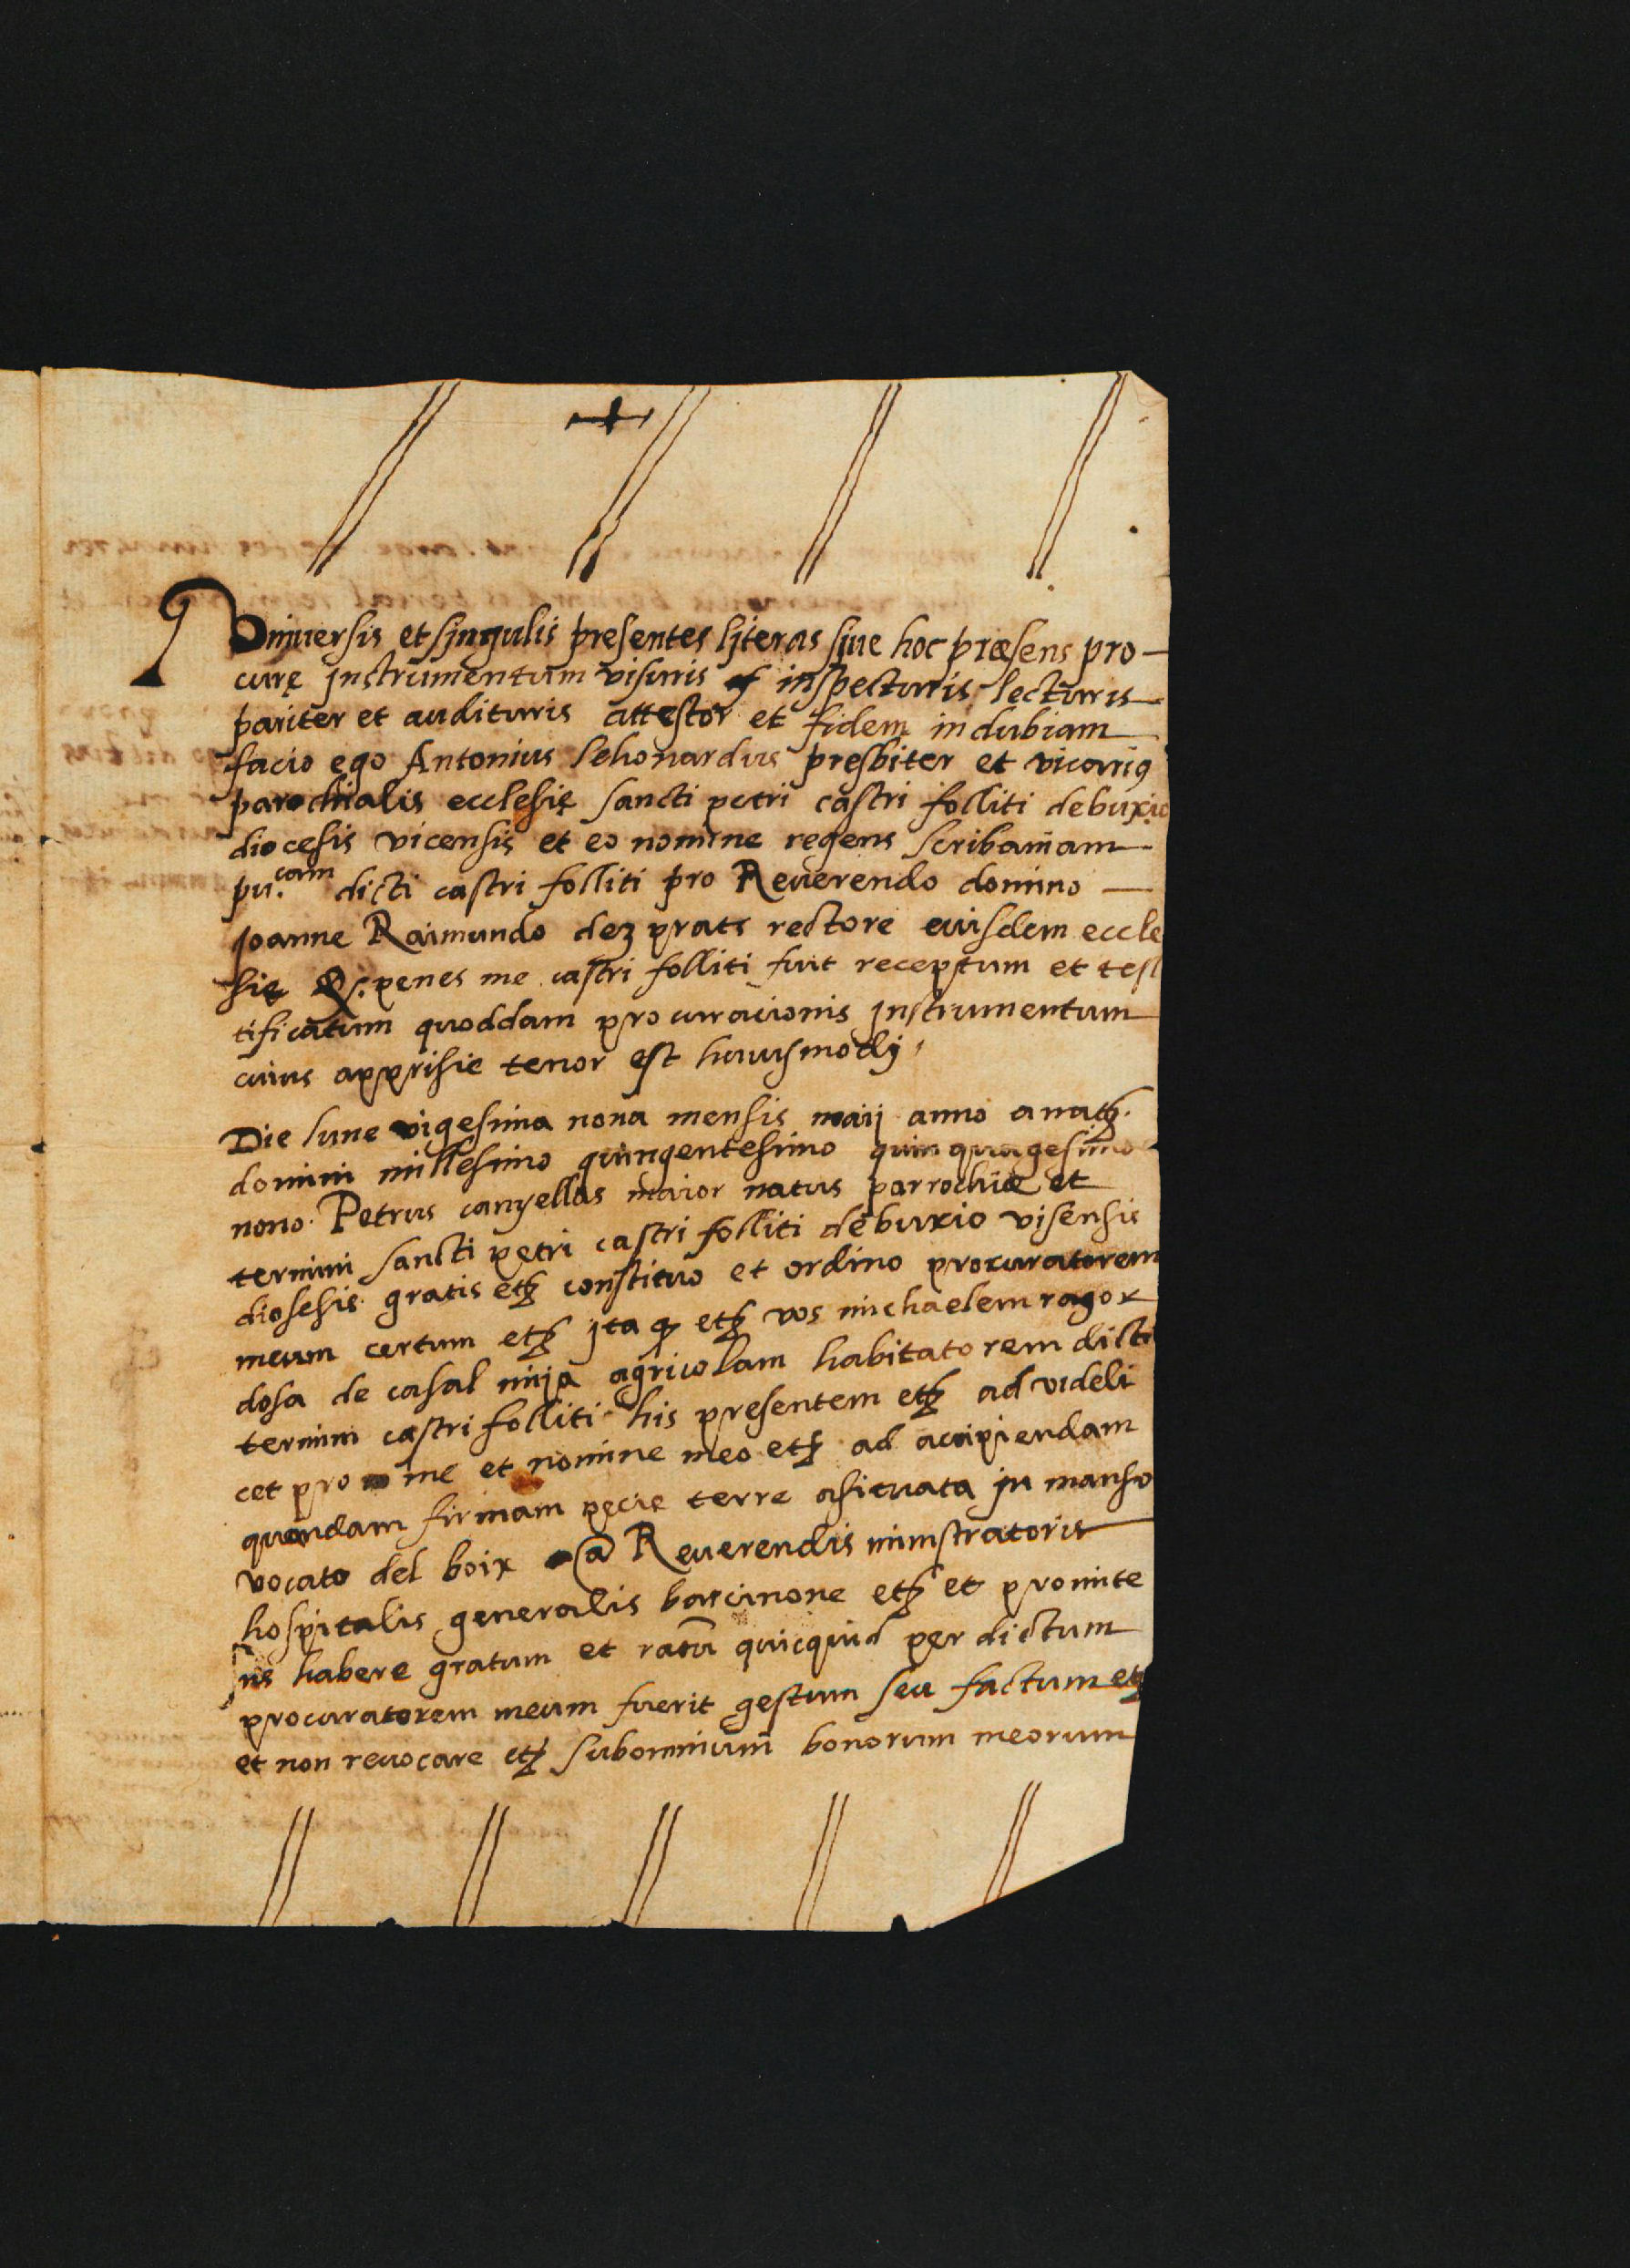 Vniuersis et singulis presentes literas siue hoc præsens pro-
curę jnstrumentum visuris inspecturis lecturis
pariter et audituris attestor et fidem indubiam
facio ego Antonius lehonardus presbiter et vicarius
parochialis ecclesię sancti petri castri folliti de buxio
diocesis vicensis et eo nomine regens scribaniam
pu.cam dicti castri folliti pro Reuerendo domino
joanne Raimundo dez prats rectore euisdem eccle
się penes me castri folliti fuit receptum et tes
tificatum quoddam procuracionis jnstrumentum
cuius apprisie tenor est huiusmodj
Die lune vigesima nona mensis maij anno a natʒ.
domini millesimo quingentesimo quinquagesimo
nono. Petrus canyellas maior natus parrochiæ et
termini sancti petri castri folliti de buxio visensis
diosesis gratis etʒ constituo et ordino procuratorem
meum certum etʒ jta q etʒ vos michaelem ragor
dosa de casal mija agricolam habitatorem dicti
termini castri folliti his presentem etʒ ad videli
cet pro me et nomine meo etʒ ad accipiendam
quandam firmam pecie terre asituata jn manso
vocato del boix a Reuerendis ministratoris
hospitalis generalis barcinone etʒ et promite
ns habere gratum et ratū quicquid per dictum
procuratorem meum fuerit gestum seu factum etʒ
et non reuocare etʒ sub omnium bonorum meorum